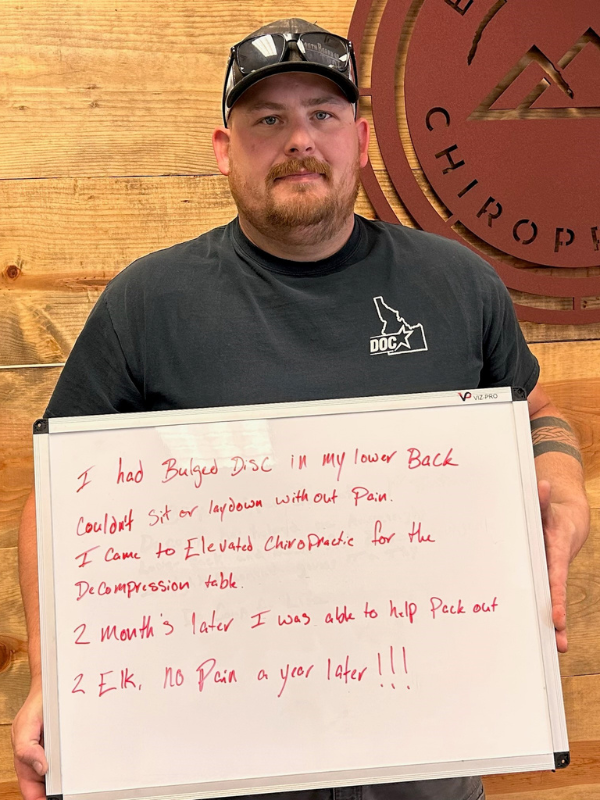 CHIROP
DOC
VP VIZ-PRO
I had Bulged Disc in my lower Back
Couldn't sit or laydown without Pain.
I came to Elevated Chiropractic for the
Decompression table.
2 Month's later I was able to help Pack out
2 Elk, no Pain a year later!!!